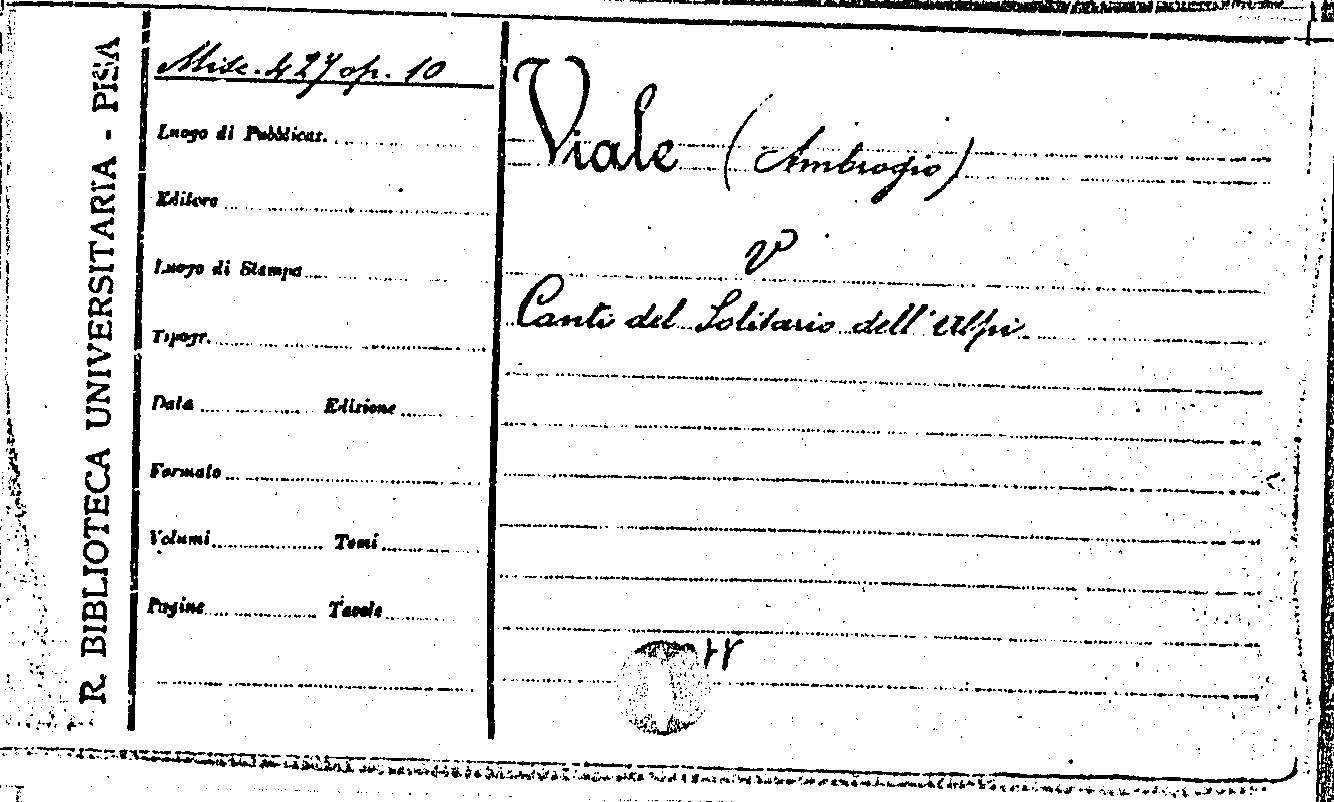 R. BIBLIOTECA UNIVERSITARIA - PISA
Misc. 427 op. 10
Luogo di Pubblicaz.
Editore
Luogo di Stampa
Tipogr.
Data Edizione
Formato
Volumi Tomi
Pagine Tavole
Viale (Ambrogio)
Canti del Solitario dell'Alpi